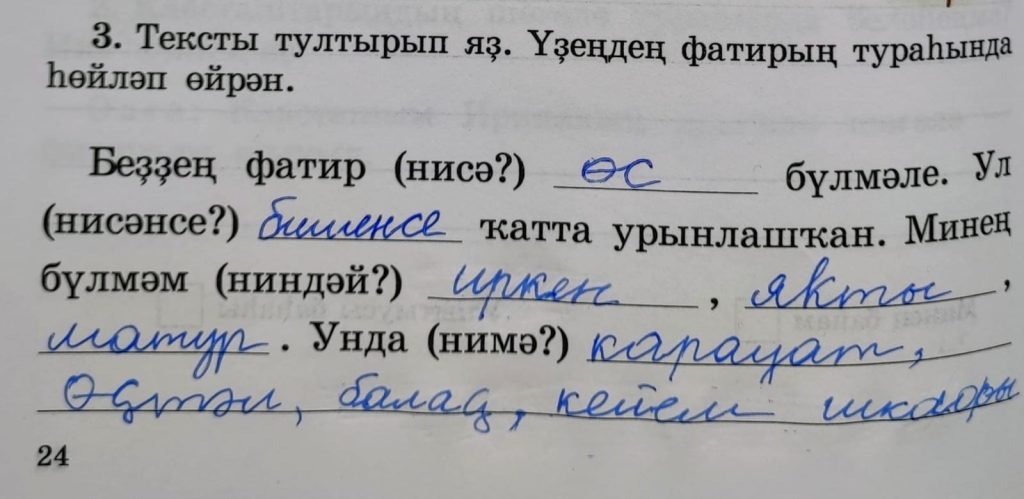 3. Тексты тултырып яҙ. Үҙеңдең фатирың тураһында
һөйләп өйрән.
Беҙҙең фатир (нисә?) өс бүлмәле. Ул
(нисәнсе?) бишенсе ҡатта урынлашҡан. Минең
бүлмәм (ниндәй?) иркен, якты,
матур. Унда (нимә?) карауат,
өҫтәл, балаҫ, кейем шкафы
24